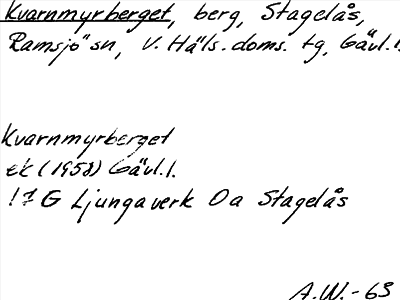 Kvarnmyrberget, berg, Stagelås,
Ramsjö sn, V. Häls. doms. tg, Gävl. l.
Kvarnmyrberget
ek (1958) Gävl. l.
17 G Ljungaverk 0a Stagelås
A.W.-63